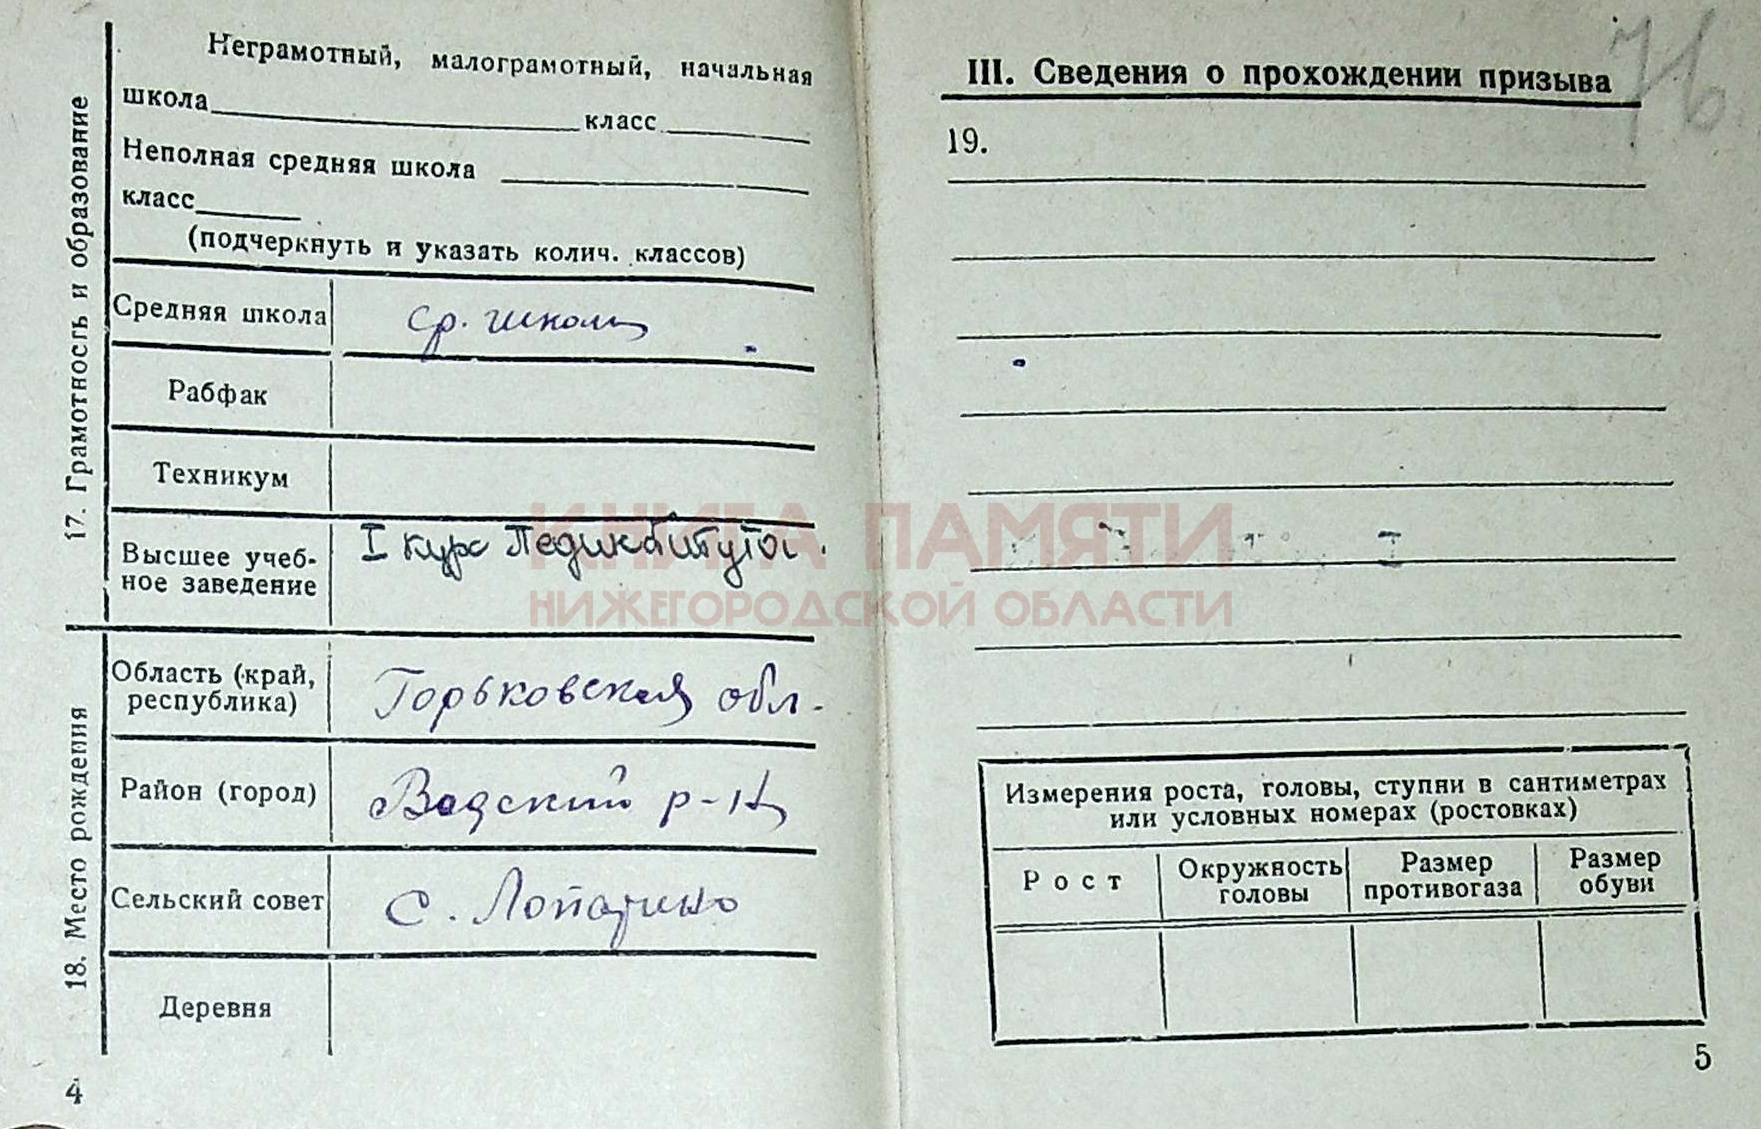 17. Грамотность и образование
Неграмотный, малограмотный, начальная
школа класс
Неполная средняя школа
класс
(подчеркнуть и указать колич. классов)
Средняя школа ср. школы
Рабфак
Техникум
Высшее учеб-
ное заведение
I курс Пединститута.
18. Место рождения
Область (край,
республика)
Горьковская обл.
Район (город) Вадский р-н
Сельский совет с. Лопатино
Деревня
4
76
III. Сведения о прохождении призыва
19.
Измерения роста, головы, ступни в сантиметрах
или условных номерах (ростовках)
Рост
Окружность
головы
Размер
противогаза
Размер
обуви
5
КНИГА ПАМЯТИ
НИЖЕГОРОДСКОЙ ОБЛАСТИ